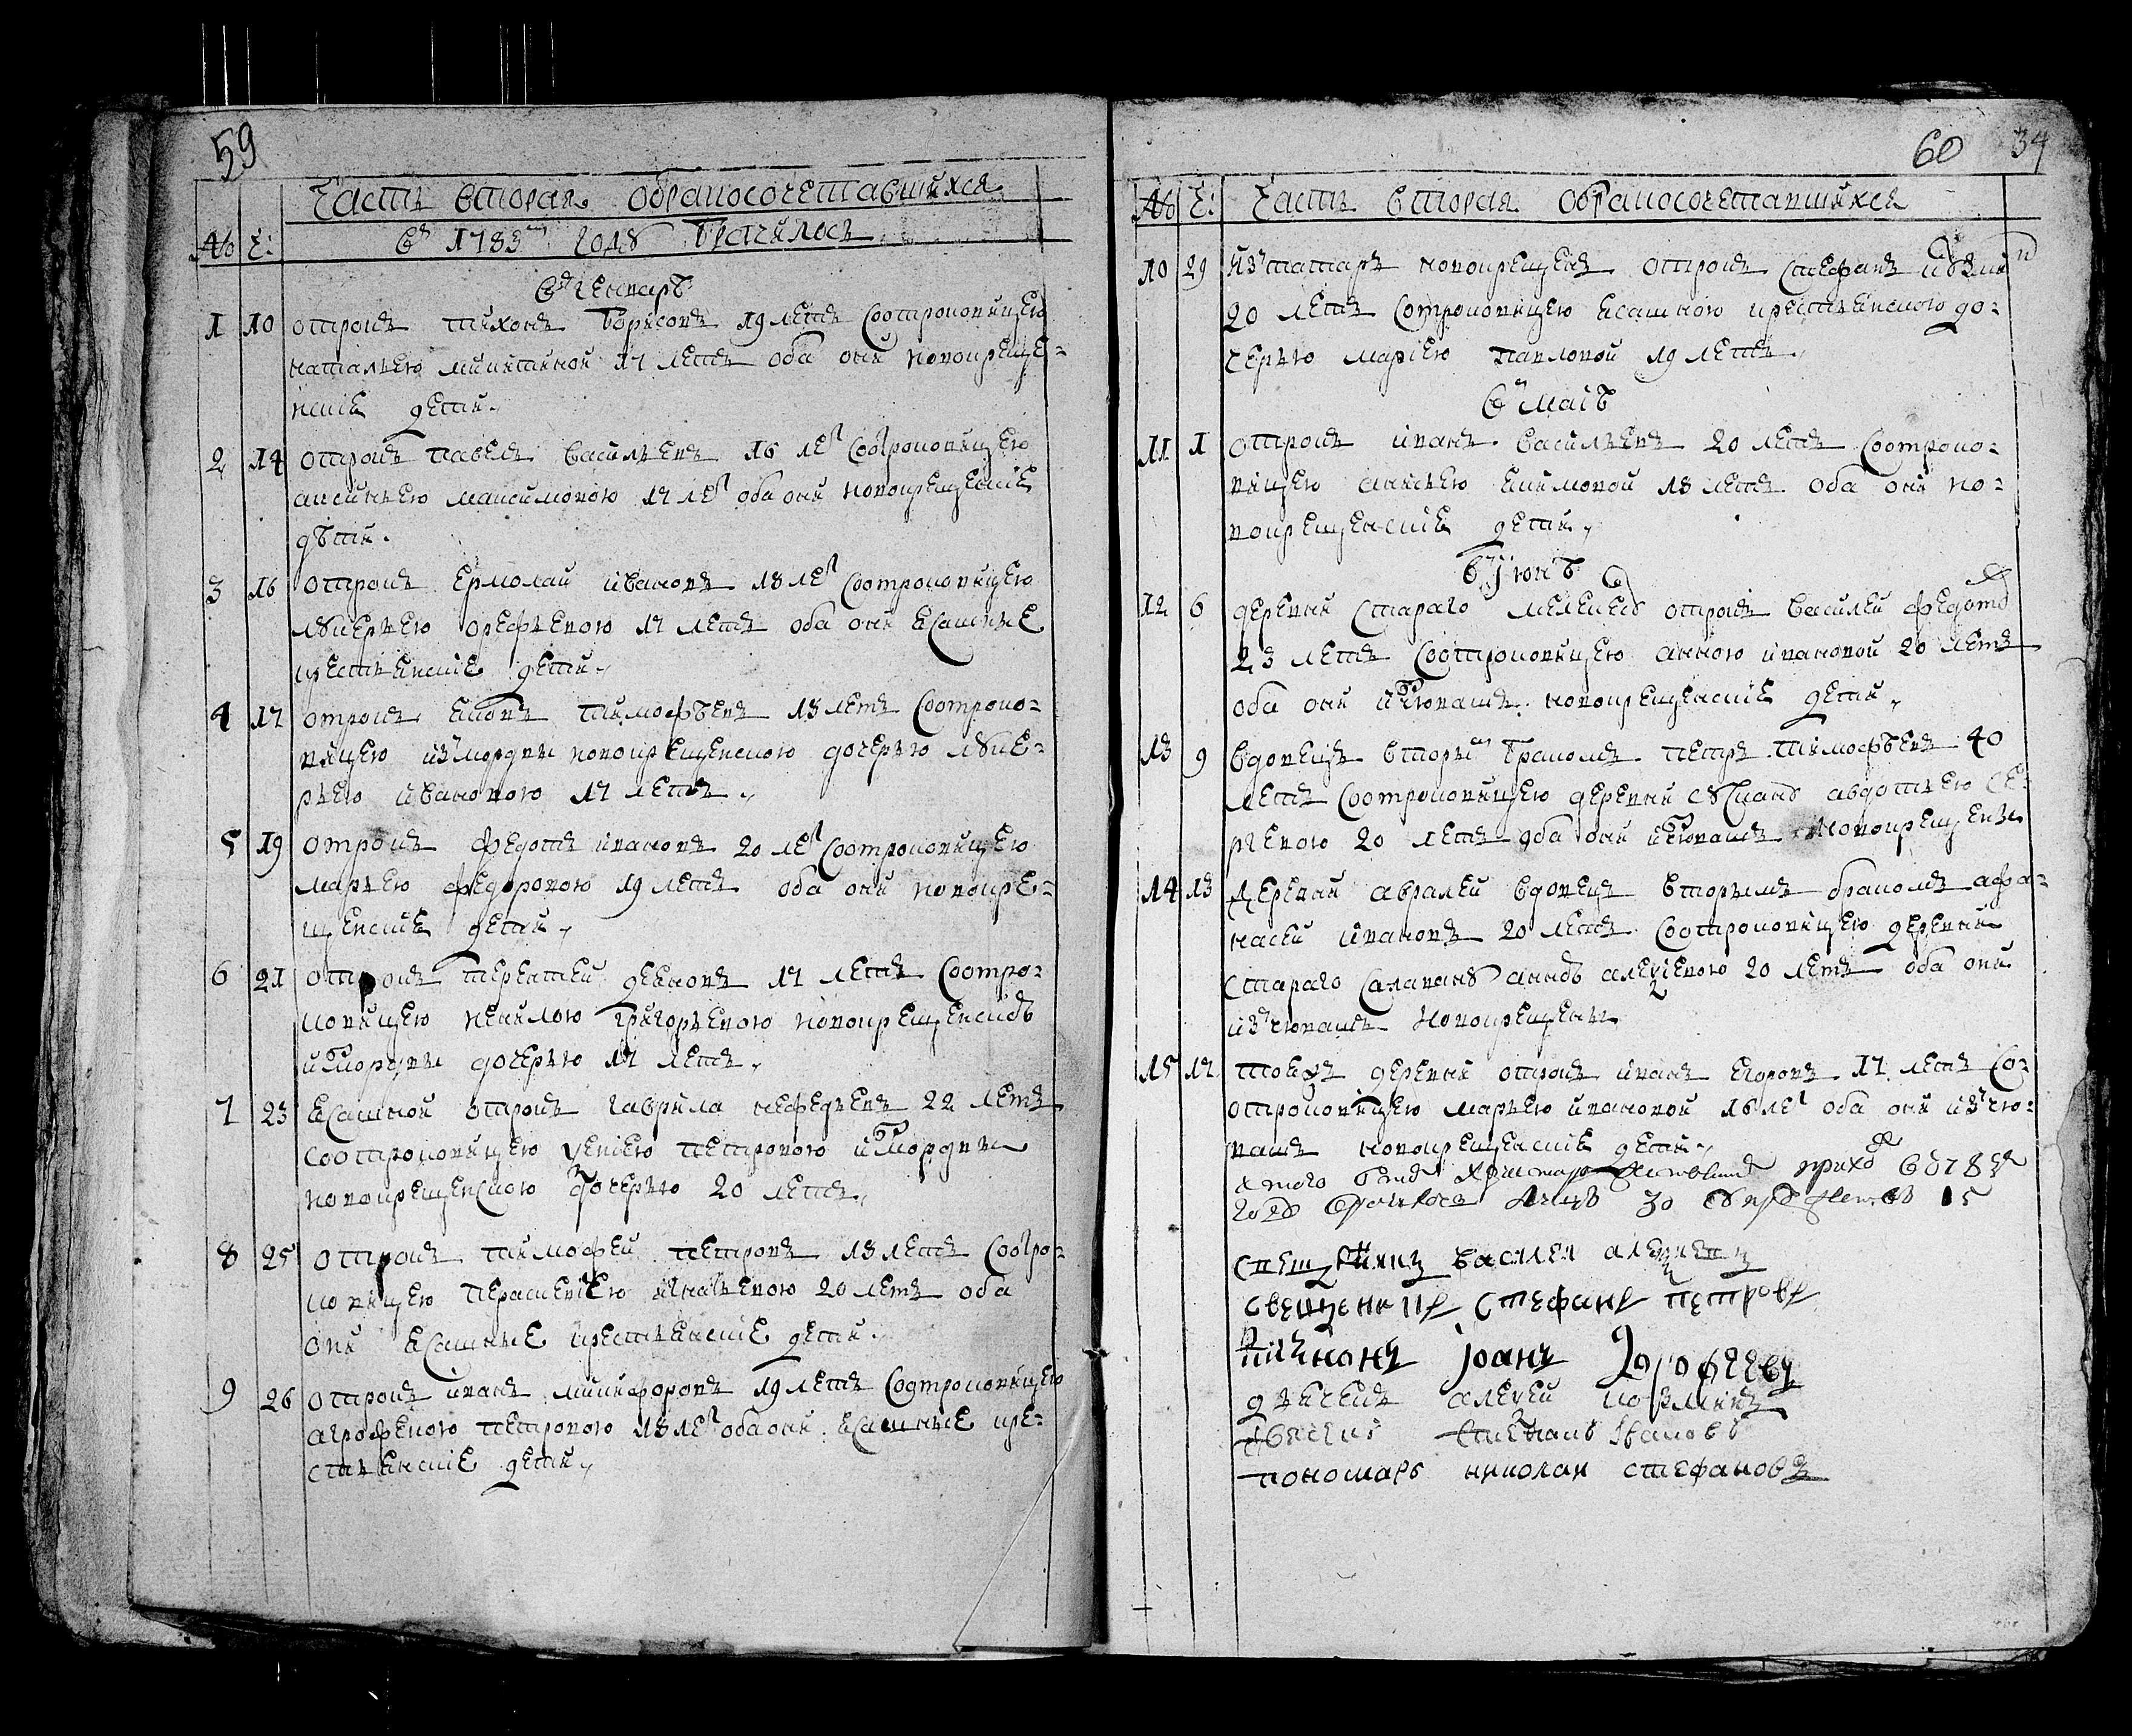 59
Часть вторая обракосочетавшихся
№ Ч: въ 1783мъ году Брачилось
въ генваръ
1 10 отрокъ тихонъ борисовъ 19 летъ Соотроковицею
натальею микитиной 17 летъ оба они новокреще-
нские дети
2 14 отрокъ павелъ васильевъ 16 летъ Соотроковицею
аксиньею максимовою 17 летъ оба они новокрещенские
дѣти
3 16 отрокъ Ермолаи ивановъ 18 летъ Соотроковицею
лукерьею орефьевою 17 летъ оба они ясашные
крестьянские дети
4 17 отрокъ тимофѣевъ 18 летъ Соотроко-
вицею изъ мордвы новокрещенскою дочерью луке-
рьею ивановою 17 летъ
5 19 отрокъ федотъ ивановъ 20 летъ Соотроковицею
марьею федоровою 19 летъ оба они новокре-
щенские дети
6 21 отрокъ терентей 17 летъ Соотро-
ковицею ненилою григорьевою новокрещенскою
измордвы дочерью 17 летъ
7 23 ясашной отрокъ гаврила нефедьевъ 22 летъ
соотроковицею петровою измордвы
новокрещенскою дочерью 20 летъ
8 25 отрокъ тимофей петровъ 18 летъ Соотро-
ковицею перасковиею игнатьевою 20 летъ оба
они ясашные крестьянские дети
9 26 отрокъ иванъ микифоровъ 19 летъ Соотроковицею
агрофеною петровою 18 летъ оба они ясашные кре-
стьянские дети
60 34
№ Ч: Часть вторая обракосочетавшихся
10 29 изъ татаръ новокрещенъ отрокъ Стефанъ
20 летъ Сотроковицею ясашною крестьянскою до-
черью мариею павловой 19 летъ
въ маіѣ
11 1 отрокъ иванъ васильевъ 20 летъ Соотроко-
вицею анисьею екимовой 18 летъ оба они но-
вокрещенские дети
въ іюнѣ
12 6 деревни Стараго отрокъ василей федотовъ
23 летъ Соотроковицею анною ивановой 20 летъ
оба они изчювашъ новокрещенские дети
13 9 вдовецъ вторымъ бракомъ петръ тимофѣевъ 40
летъ Соотроковицею деревни авдотьею се-
ргеевою 20 летъ оба они изчювашъ новокрещены
14 13 деревни авралей вдовецъ вторымъ бракомъ афа-
насей ивановъ 20 летъ Соотроковицею деревни
стараго Салавану алексеевою 20 летъ оба они
изъ чювашъ новокрещены
15 17 тоежъ деревни отрокъ иванъ егоровъ 17 летъ Со-
отроковицею марьею ивановой 16 летъ оба они изъ чю-
вашъ новокрещенские дети
году 30 15
священникъ василеи алексеевъ
священникъ Стефанъ петровъ
диаконъ Іоанъ
дьячекъ алексей козминъ
дьячекъ Ивановъ
пономарь николаи стефановъ